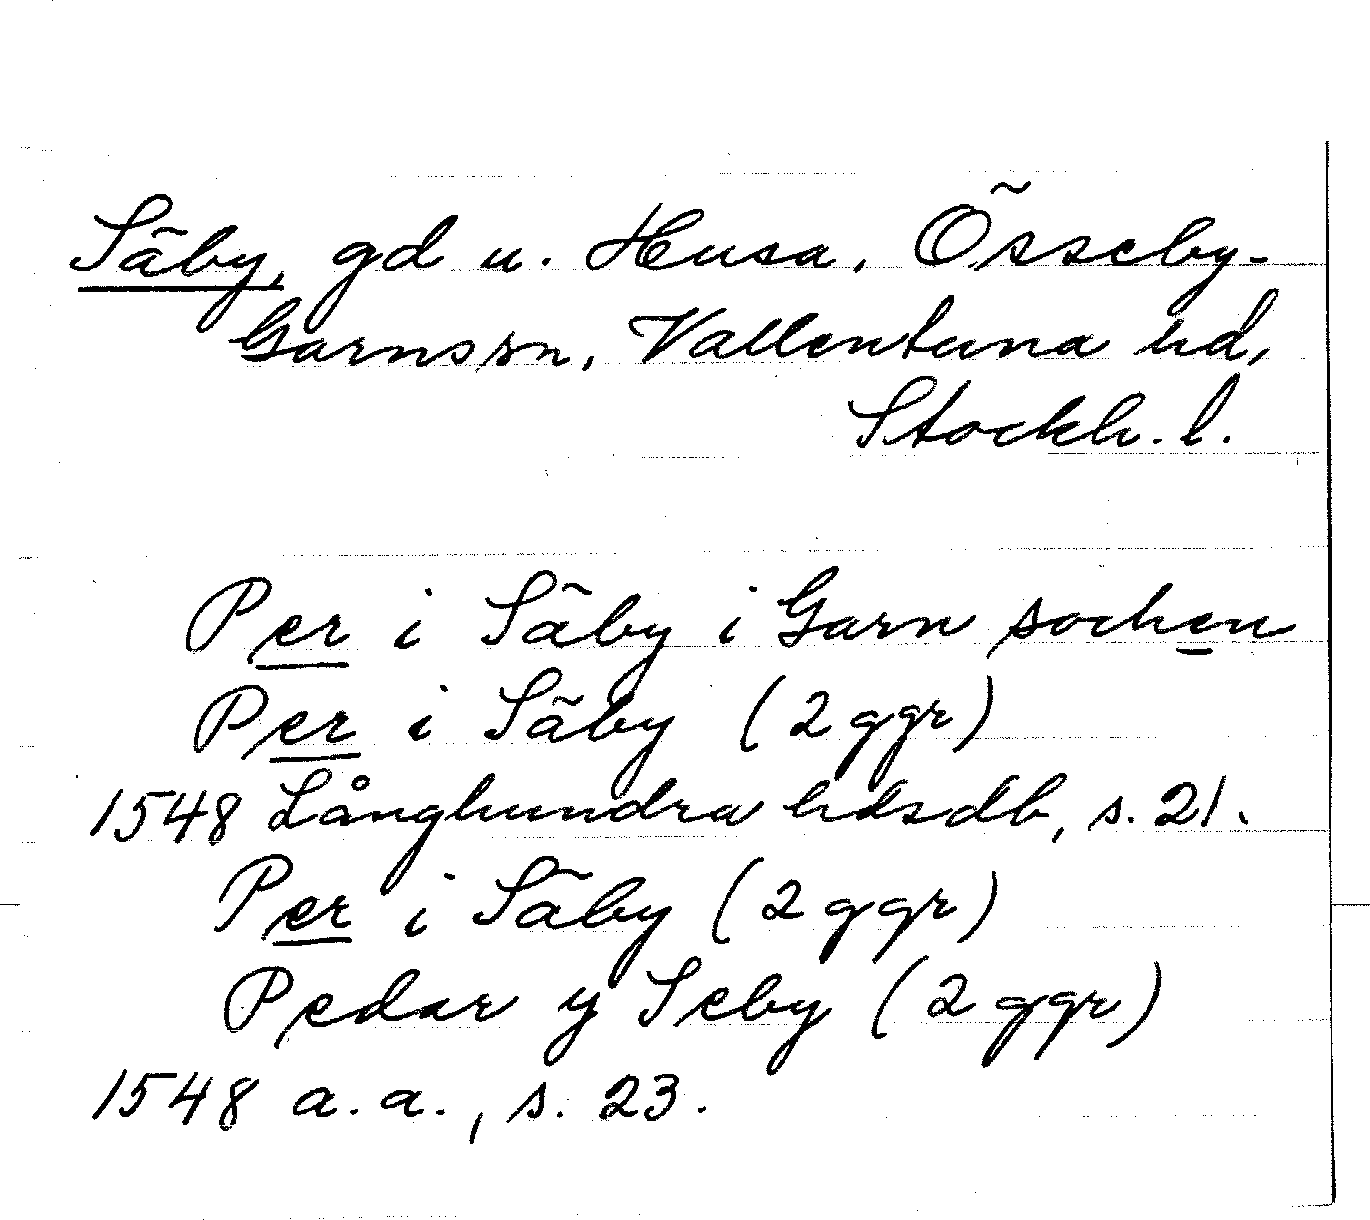 Säby, gd u. Husa, Össeby-
Garns sn, Vallentuna hd,
Stockh. l.
Per i Säby i Garn sochen
Per i Säby (2 ggr)
1548 Långhundra hdsdb, s. 21.
Per i Säby (2 ggr)
Pedar y Seby (2 ggr)
1548 a.a., s. 23.